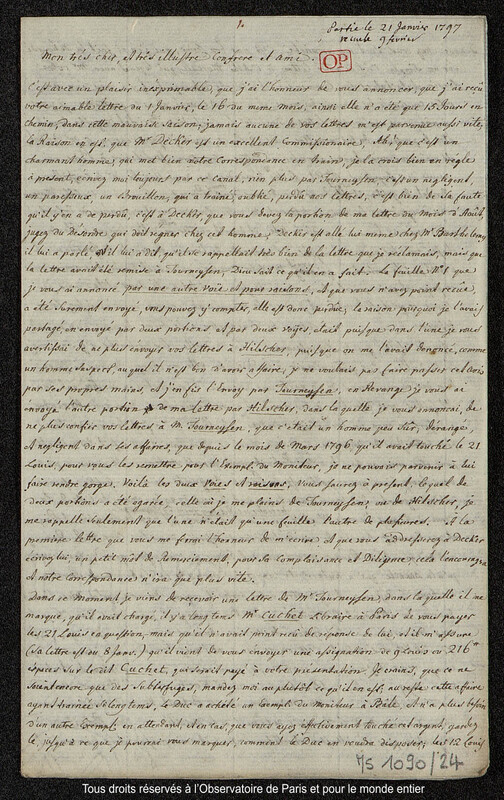 1.
Partie le 21 Janvier 1797
reçue le 9 fevrier
OP
Mon très cher, et très illustre Confrere et Ami.
C'est avec un plaisir inexprimable, que j'ai l'honneur de vous annoncer, que j'ai reçu
votre aimable lettre du 1 Janvier, le 16 du meme mois, ainsi elle n'a été que 15 Jours en
chemin, dans cette mauvaise saison; jamais aucune de vos lettres m'est parvenue aussi vite,
la Raison en est, que Mr Decker est un excellent Commissionaire. Ah, que c'est un
charmant homme; qui met bien notre Correspondance en train, je la crois bien en regle
à present, envoyez moi toujours par ce Canal, rien plus par Tourneysen, c'est un negligent,
un paresseux, un Brouillon, qui a trainé, oublié, perdu nos lettres, c'est bien de sa faute
qu'il y'en a de perdu, c'est à Decker que vous devez la portion de ma lettre du Mois d'Août,
jugez du Desordre qui doit regner chez cet homme; Decker est allé lui meme chez Mr Barthelemy
il lui a parlé, et il lui a dit, qu'il se rappellait très bien de la lettre que je réclamais, mais que
la lettre avait été remise à Tourneysen, Dieu sait ce qu'il en a fait. La feuille No 1 que
je vous ai annoncé par une autre voie et pour raisons, et que vous n'avez point recue,
a été surement envoyé, vous pouvez y compter, elle est donc perdue; la raison pourquoi je l'avais
partagé, en envoyé par deux portions et par deux voyes, etait puisque dans l'une je vous
avertissai de ne plus envoyer vos lettres à Hilscher, puisque on me l'avait denoncé, comme
un homme suspect, auquel il n'est bon d'avoir affaire, je ne voulais pas faire passer cet avis
par ses propres mains et j'en fis l'Envoy par Tourneysen, en Revange je vous ai
envoyé l'autre portion de ma lettre par Hilscher, dans la quelle je vous annoncai, de
ne plus confier vos lettres à Mr Tourneysen, que c'etait un homme peu sur, derangé,
et negligent dans ses affaires, que depuis le mois de Mars 1796, qu'il avait touché le 21
Louis, pour vous les remettre pour l'Exempl. du Moniteur, je ne pouvois parvenir à lui
faire rendre gorge. Voilà les deux Voies et raisons, Vous saurez à present, lequel de
deux portions a été egarée, celle où je me plains de Tourneysen, ou de Hilscher, je
me rappelle seulement que l'une n'était qu'une feuille l'autre de plusieurs. A la
premiere lettre que vous me ferai l'honneur de m'écrire et que vous addresserez à Decker
ecrivez lui, un petit mot de Remerciment, pour sa complaisance et Diligence; cela l'encouragera
et notre Correspondance n'ira que plus vite.
Dans ce Moment je viens de recevoir une lettre de Mr Tourneysen, dans la quelle il me
marque, qu'il avait chargé, il y'a longtems Mr Cuchet Libraire à Paris de vous payer
les 21 Louis en question, mais qu'il n'avait point reçu de réponse de lui, et il m'assure
(sa lettre est du 8 Janv.) qu'il vient de vous envoyer une assignation de 9 Louis ou 216 tt
especes sur le dit Cuchet, qui serait payé à votre présentation. Je crains, que ce ne
soient encore que des Subterfuges, mandez moi au plutôt ce qu'il en est; au reste cette affaire
ayant trainée si longtems, le Duc a acheté un Exempl. du Moniteur à Bâle, et n'a plus besoin
d'un autre Exempl. en attendant, et en cas, que vous ayez effectivement touché cet argent, gardez
le, jusqu'à ce que je pourrai vous marquer, comment le Duc en voudra disposer; les 12 Louis
Ms 1090/24
Tous droits réservés à l'Observatoire de Paris et pour le monde entier